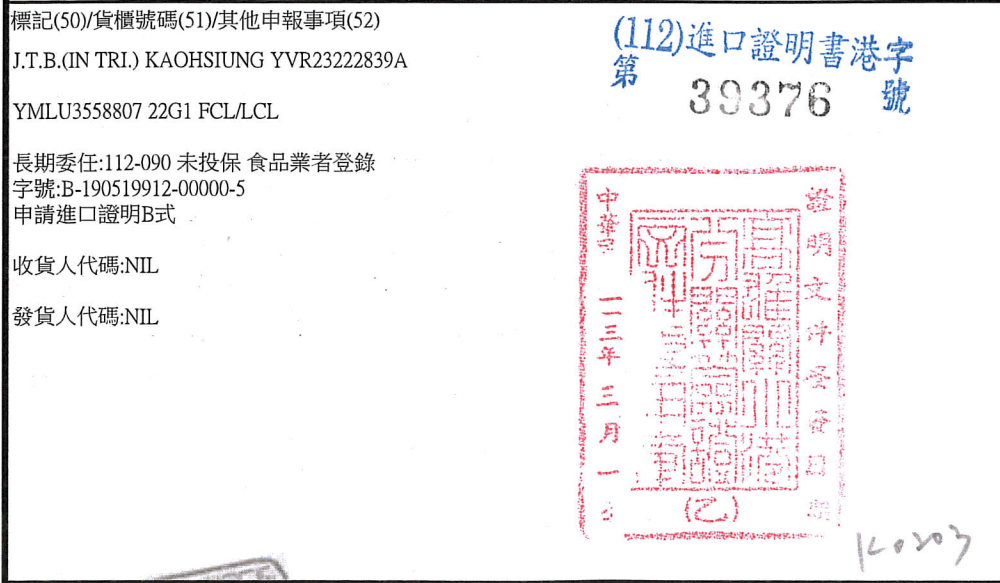 標記(50)/貨櫃號碼(51)/其他申報事項(52)
J.T.B.(IN TRI.) KAOHSIUNG YVR23222839A
YMLU3558807 22G1 FCL/LCL
長期委任:112-090 未投保 食品業者登錄
字號:B-190519912-00000-5
申請進口證明B式
收貨人代碼:NIL
發貨人代碼:NIL
(112)進口證明書港字
第 39376 號
證明文件簽發日期
中華民 一一三年 三月 一
(乙)
K0203